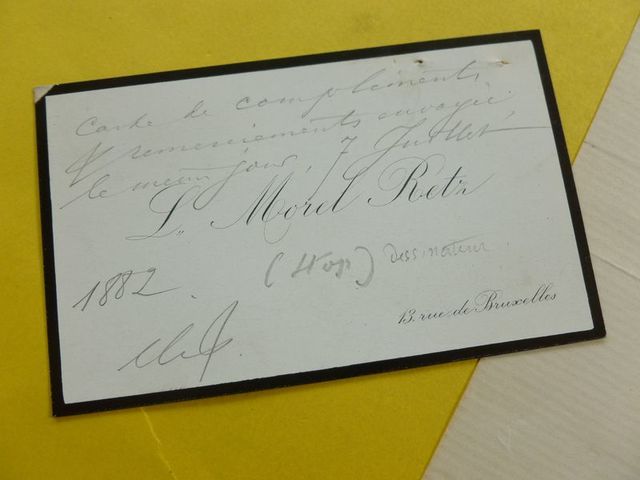 carte de compliments
& remerciements envoyée
le même jour, 7 Juillet
L. Morel Retz
(Stop) Dessinateur
1882.
13. rue de Bruxelles